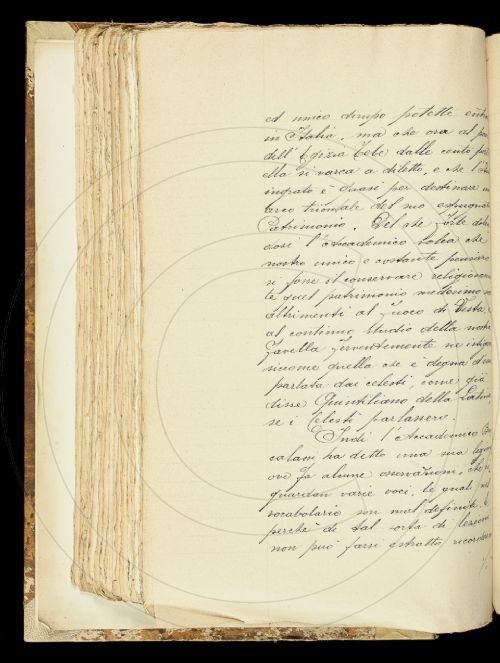 ed unico tempo potette entra
in Italia, ma che ora al pa
dell' Egizia Tebe dalle cento por
ella si varca a diletto, e che l'
ingrato è quasi per destinare un
arco trionfale del suo espugna
Patrimonio. Del che forte dolen
dosi l'Accademico volea che
nostro unico e costante pensiero
si fosse il conservare religiosamen
te quel patrimonio medesimo no
altrimenti al fuoco di Vesta, e
al continuo studio della nostra
favella ferventemente ne
siccome quella che è degna d'
parlata dai celesti, come già
disse Quintiliano della Latina
se i Celesti parlassero.
Indi l'Accademico
ha detto una sua
ove fa alcune osservazioni, che
guardan varie voci, le quali nel
vocabolario son mal definite. E
perchè di tal sorta di lezioni
non può farsi estratto,